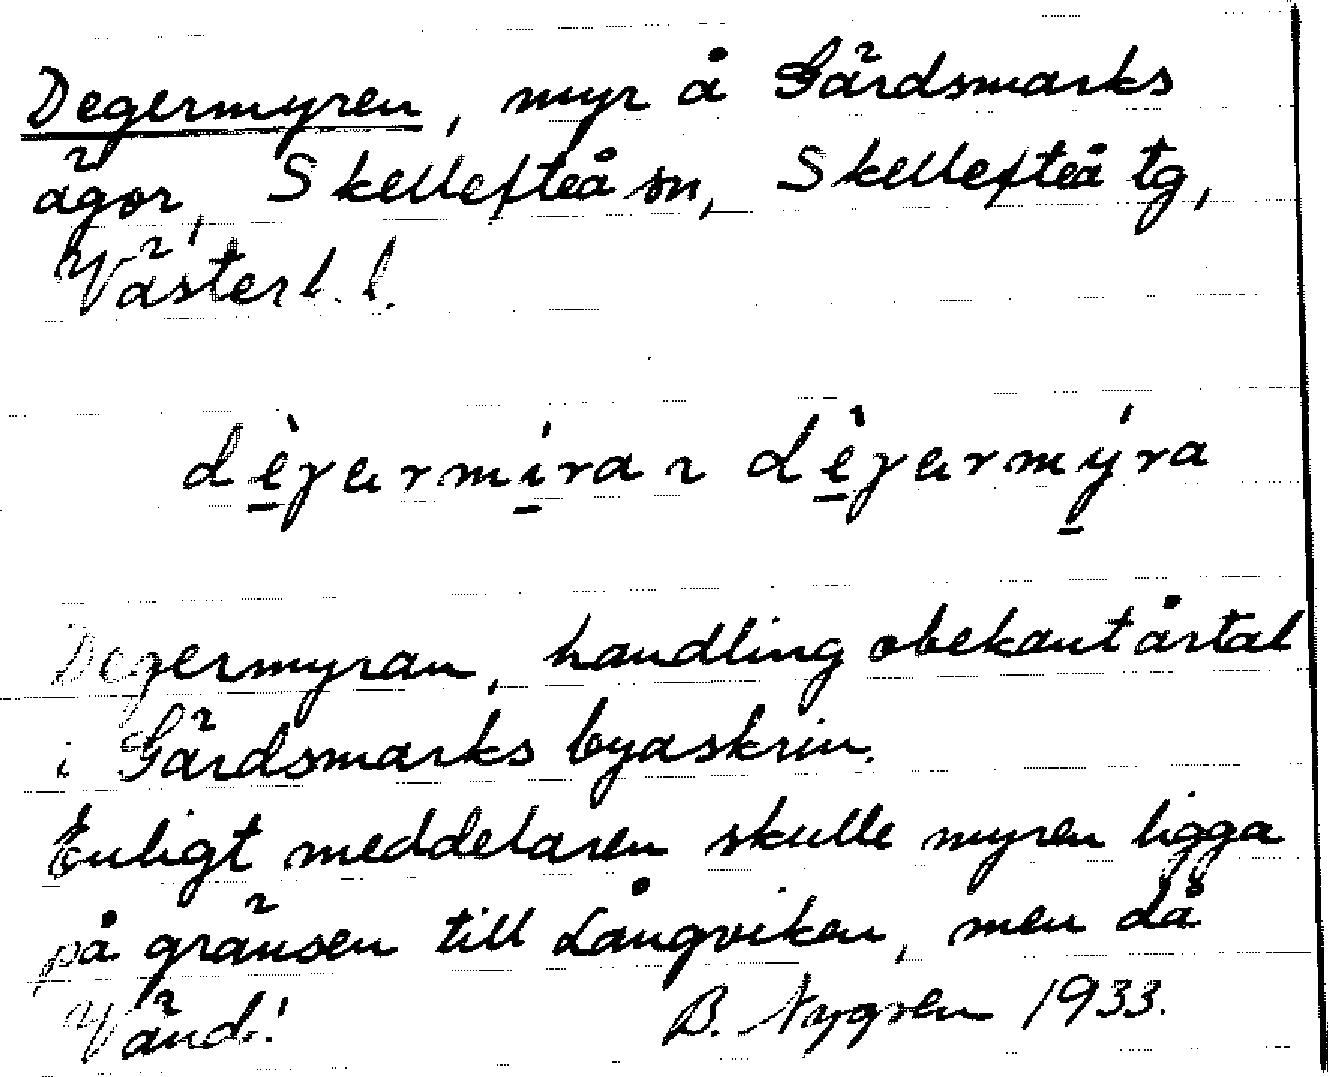 Degermyren, myr å Gärdsmarks
ägor, Skellefteå sn, Skellefteå tg,
Västerb. l.
dèɣarmíra ~ dèɣarmýra
Degermyran, handling obekant årtal
i Gärdsmarks byaskrin.
Enligt meddelaren skulle myren ligga
på gränsen till Långviken, men då
Vänd! B. Nygren 1933.